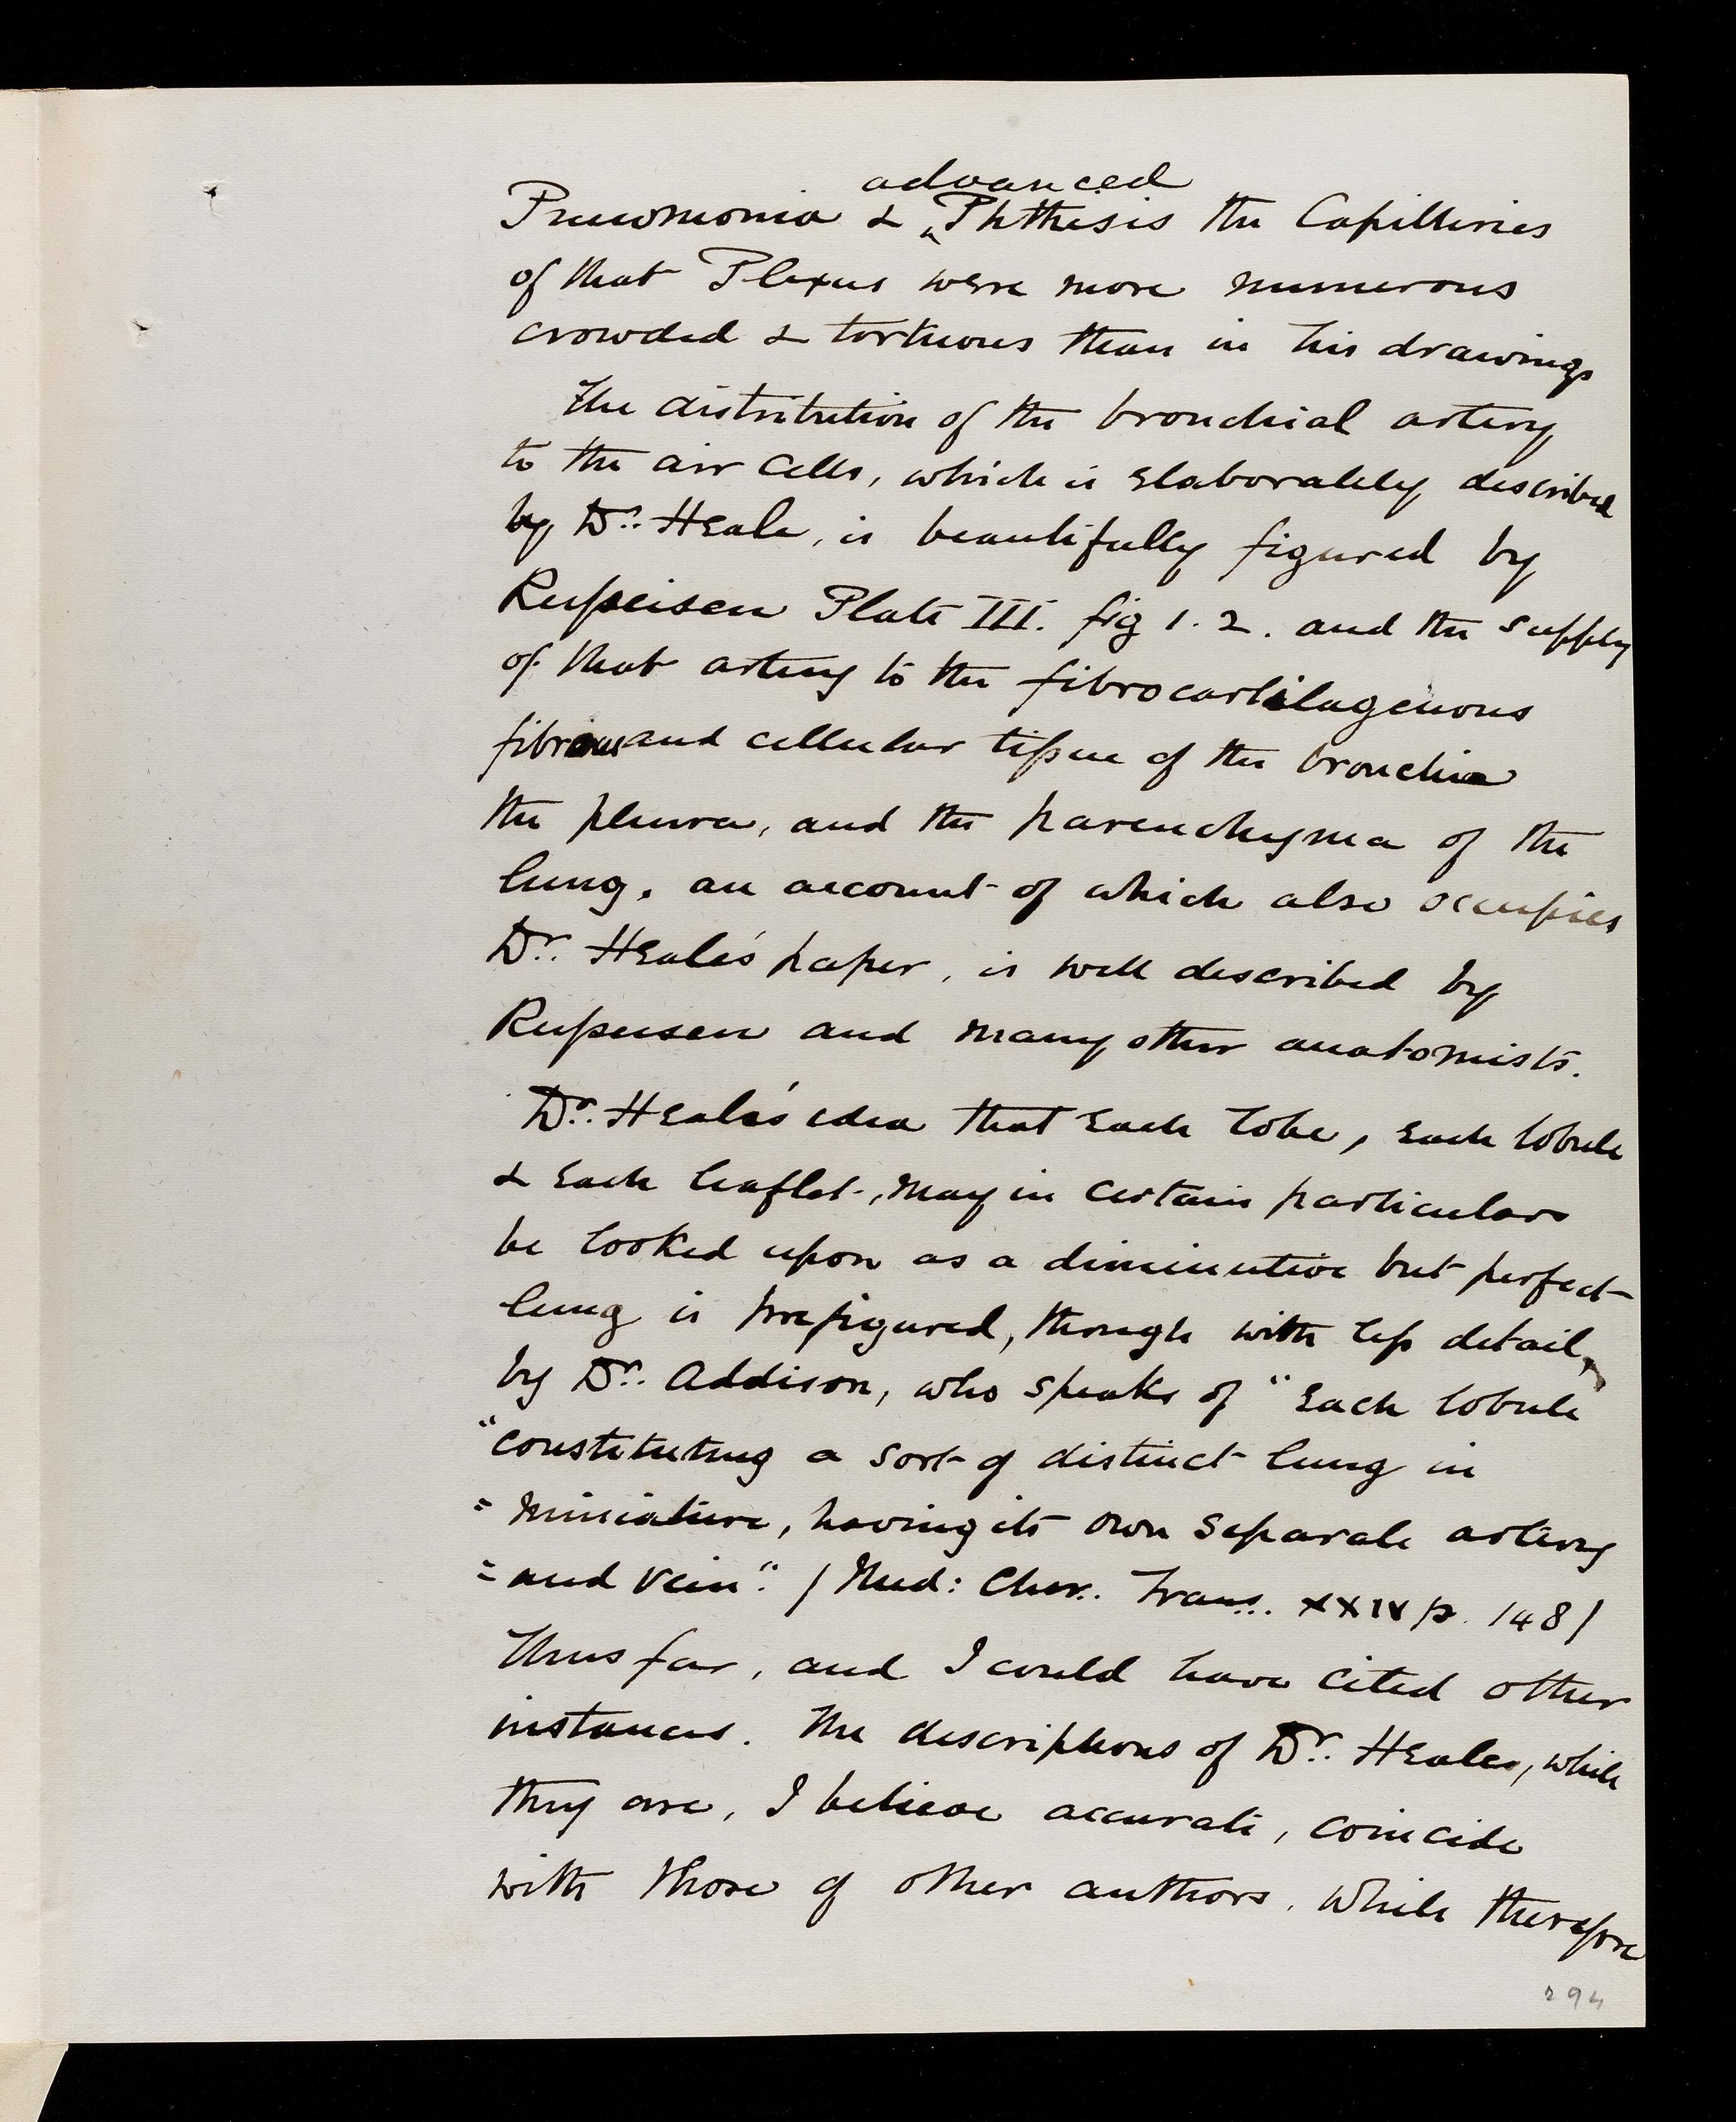 advanced
Pneumonia & ‸Phthisis the Capilleries
of that Plexus were more numerous
crowded & tortuous than in his drawings
The distribution of the bronchial artery
to the air cells, which is elaborately described
by Dr. Heale, is beautifully figured by
Reisseisen Plate III. fig 1. 2. and the supply
of that artery to the fibrocartilagenous
fibrous and cellular tissue of the bronchia
the pleura, and the parenchyma of the
lung, an account of which also occupies
Dr. Heale's paper, is well described by
Reisseisen and many other anatomists.
Dr. Heale's idea that each lobe, each lobule
& each leaflet, may in certain particulars
be looked upon as a diminutive but perfect
lung is prefigured, though with less detail,
by Dr. Addison, who speaks of "each lobule
"constituting a sort of distinct lung in
"miniature, having its own separate artery
"and vein". / Med: Chir.. Trans.. XXIV p. 148/
Thus far, and I could have cited other
instances. The descriptions of Dr. Heale, while
they are, I believe accurate, coincide
with those of other authors. While therefore
294